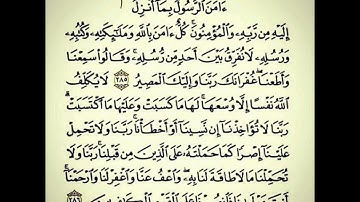 ءَامَنَ الرَّسُولُ بِمَا أُنزِلَ
إِلَيْهِ مِن رَّبِّهِ وَالْمُؤْمِنُونَ كُلٌّ ءَامَنَ بِاللَّهِ وَمَلَٰٓئِكَتِهِ وَكُتُبِهِ
وَرُسُلِهِ لَا نُفَرِّقُ بَيْنَ أَحَدٍ مِّن رُّسُلِهِ وَقَالُوا سَمِعْنَا
وَأَطَعْنَا غُفْرَانَكَ رَبَّنَا وَإِلَيْكَ الْمَصِيرُ ٢٨٥ لَا يُكَلِّفُ
اللَّهُ نَفْسًا إِلَّا وُسْعَهَا لَهَا مَا كَسَبَتْ وَعَلَيْهَا مَا اكْتَسَبَتْ
رَبَّنَا لَا تُؤَاخِذْنَا إِن نَّسِينَا أَوْ أَخْطَأْنَا رَبَّنَا وَلَا تَحْمِلْ
عَلَيْنَا إِصْرًا كَمَا حَمَلْتَهُ عَلَى الَّذِينَ مِن قَبْلِنَا رَبَّنَا وَلَا
تُحَمِّلْنَا مَا لَا طَاقَةَ لَنَا بِهِ وَاعْفُ عَنَّا وَاغْفِرْ لَنَا وَارْحَمْنَا
٢٨٦